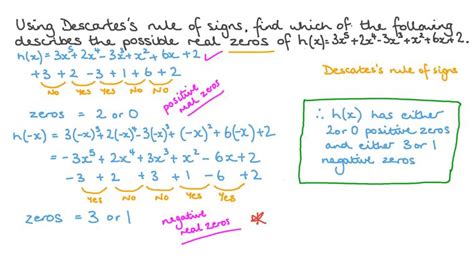 Using Descartes's rule of signs, find which of the following
describes the possible real zeros of h(x)=3x⁵+2x⁴-3x³+x²+6x+2.
h(x)=3x⁵+2x⁴-3x³+x²+6x+2 ✓
+3 +2 -3 +1 +6 +2
No Yes Yes No No
zeros = 2 or 0
positive
real zeros
h(-x) = 3(-x)⁵+2(-x)⁴-3(-x)³+(-x)²+6(-x)+2
= -3x⁵+2x⁴+3x³+x²-6x+2
-3 +2 +3 +1 -6 +2
Yes No No Yes Yes
zeros = 3 or 1
negative
real zeros
Descartes's rule of signs
∴ h(x) has either
2 or 0 positive zeros
and either 3 or 1
negative zeros